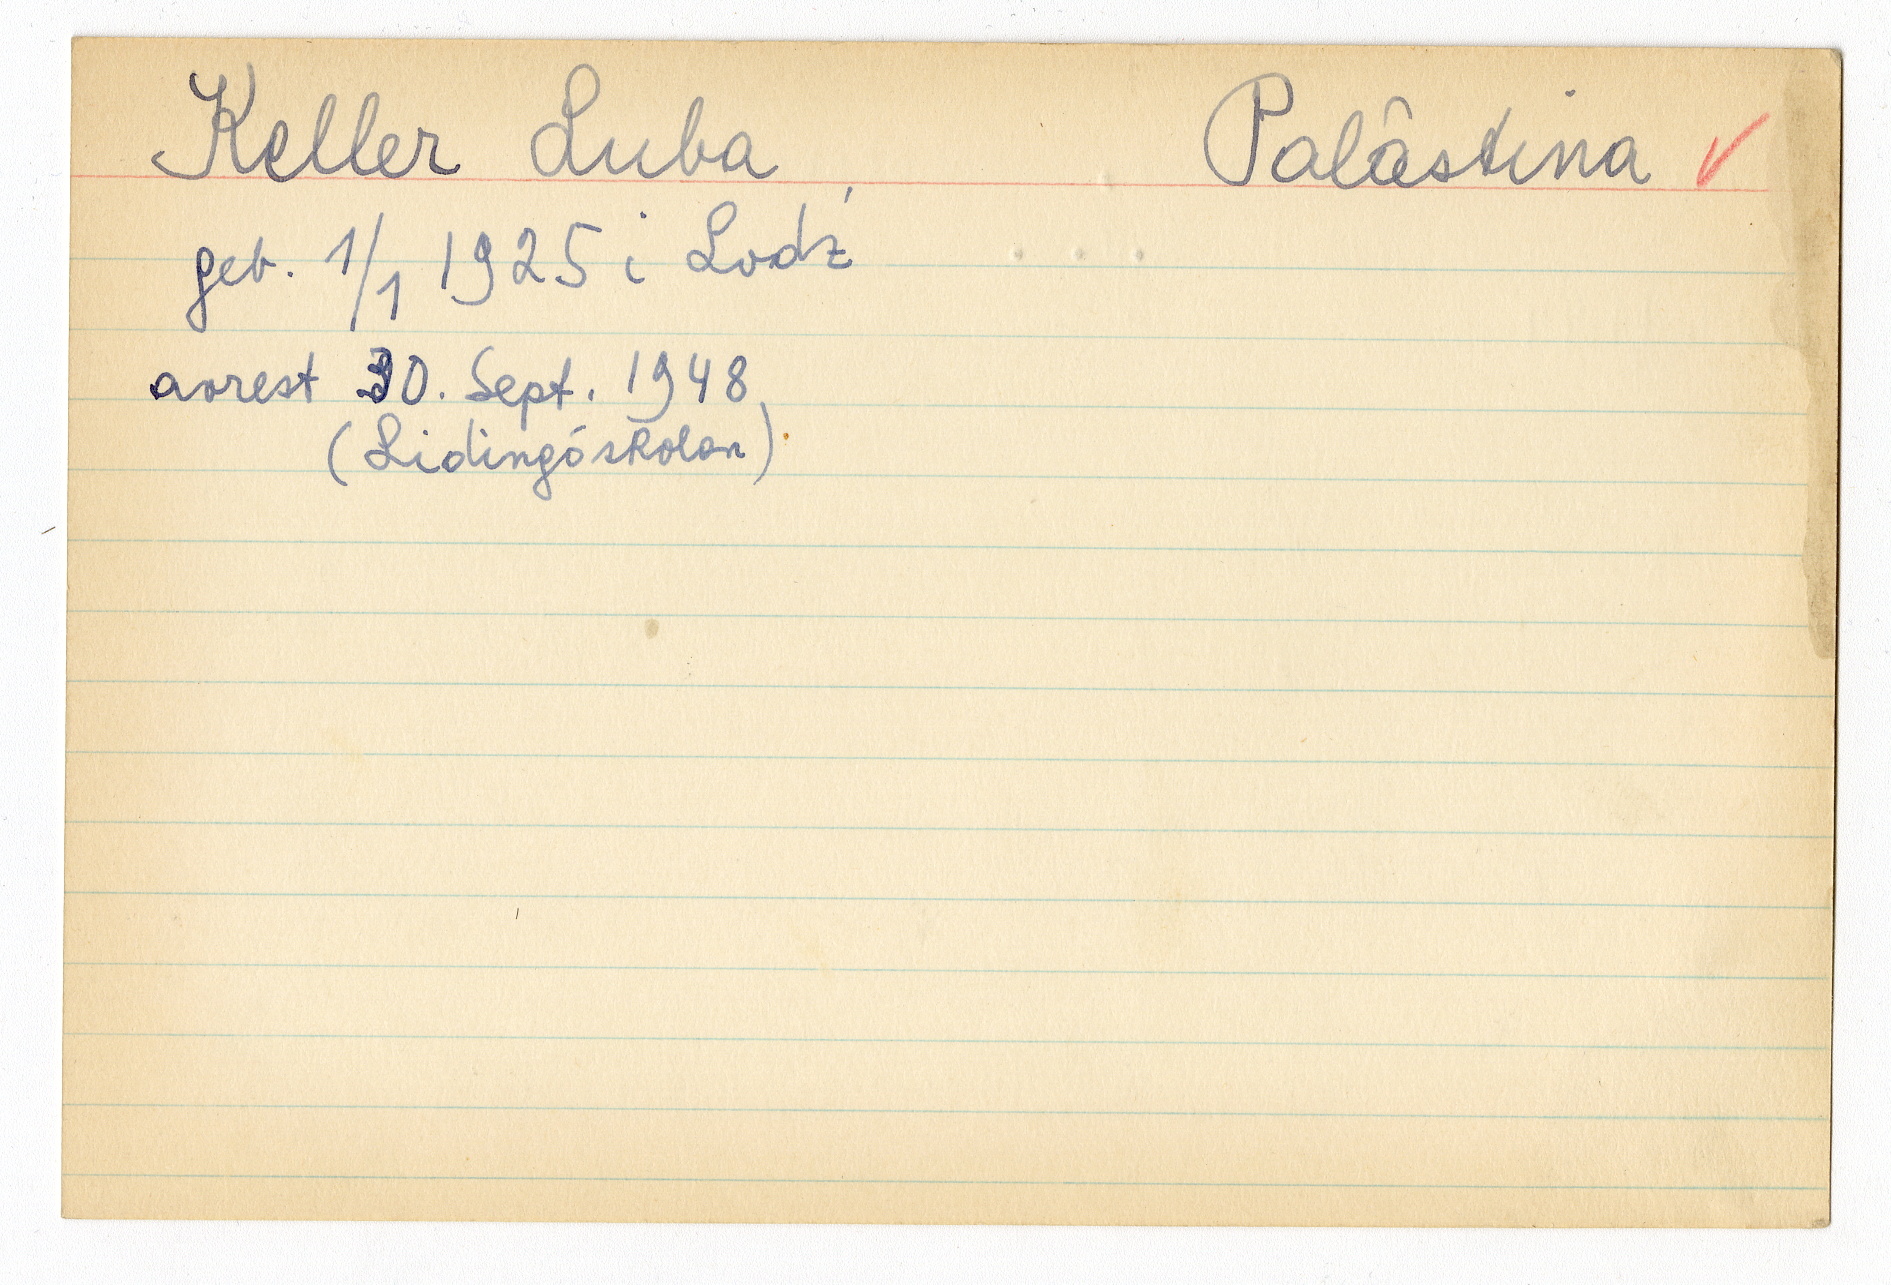 Keller Luba Palästina ✓
geb. 1/1 1925 i Lodź
avrest 30. Sept. 1948
(Lidingöskolan)